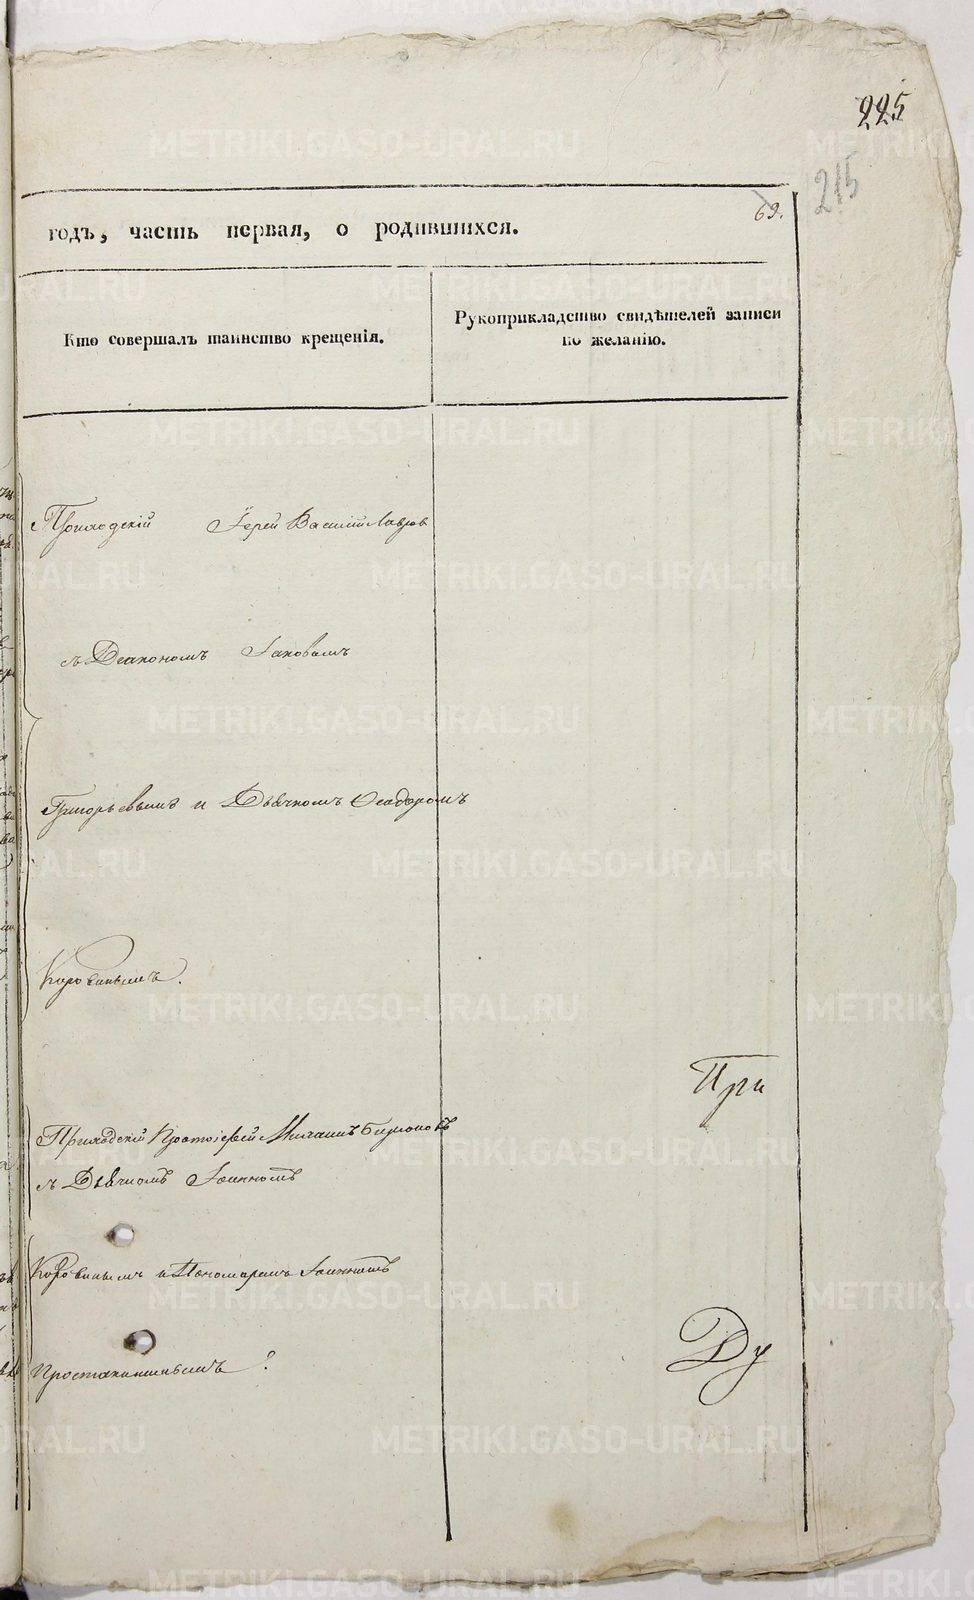 225
215
69.
годъ, часть первая, о родившихся.
Кто совершалъ таинство крещенія.
Рукоприкладство свидѣтелей записи
по желанію.
Приходскій Іерей Василій Лавров
съ Діакономъ Іаковомъ
Григорьевымъ и Дьячкомъ Ѳеодоромъ
Коровинымъ.
При
Приходскій Протоіерей Михаилъ
съ Дьячкомъ Іоанномъ
Коровинымъ и Пономаремъ Іоанномъ
Простакишинымъ
Ду
METRIKI.GASO-URAL.RU